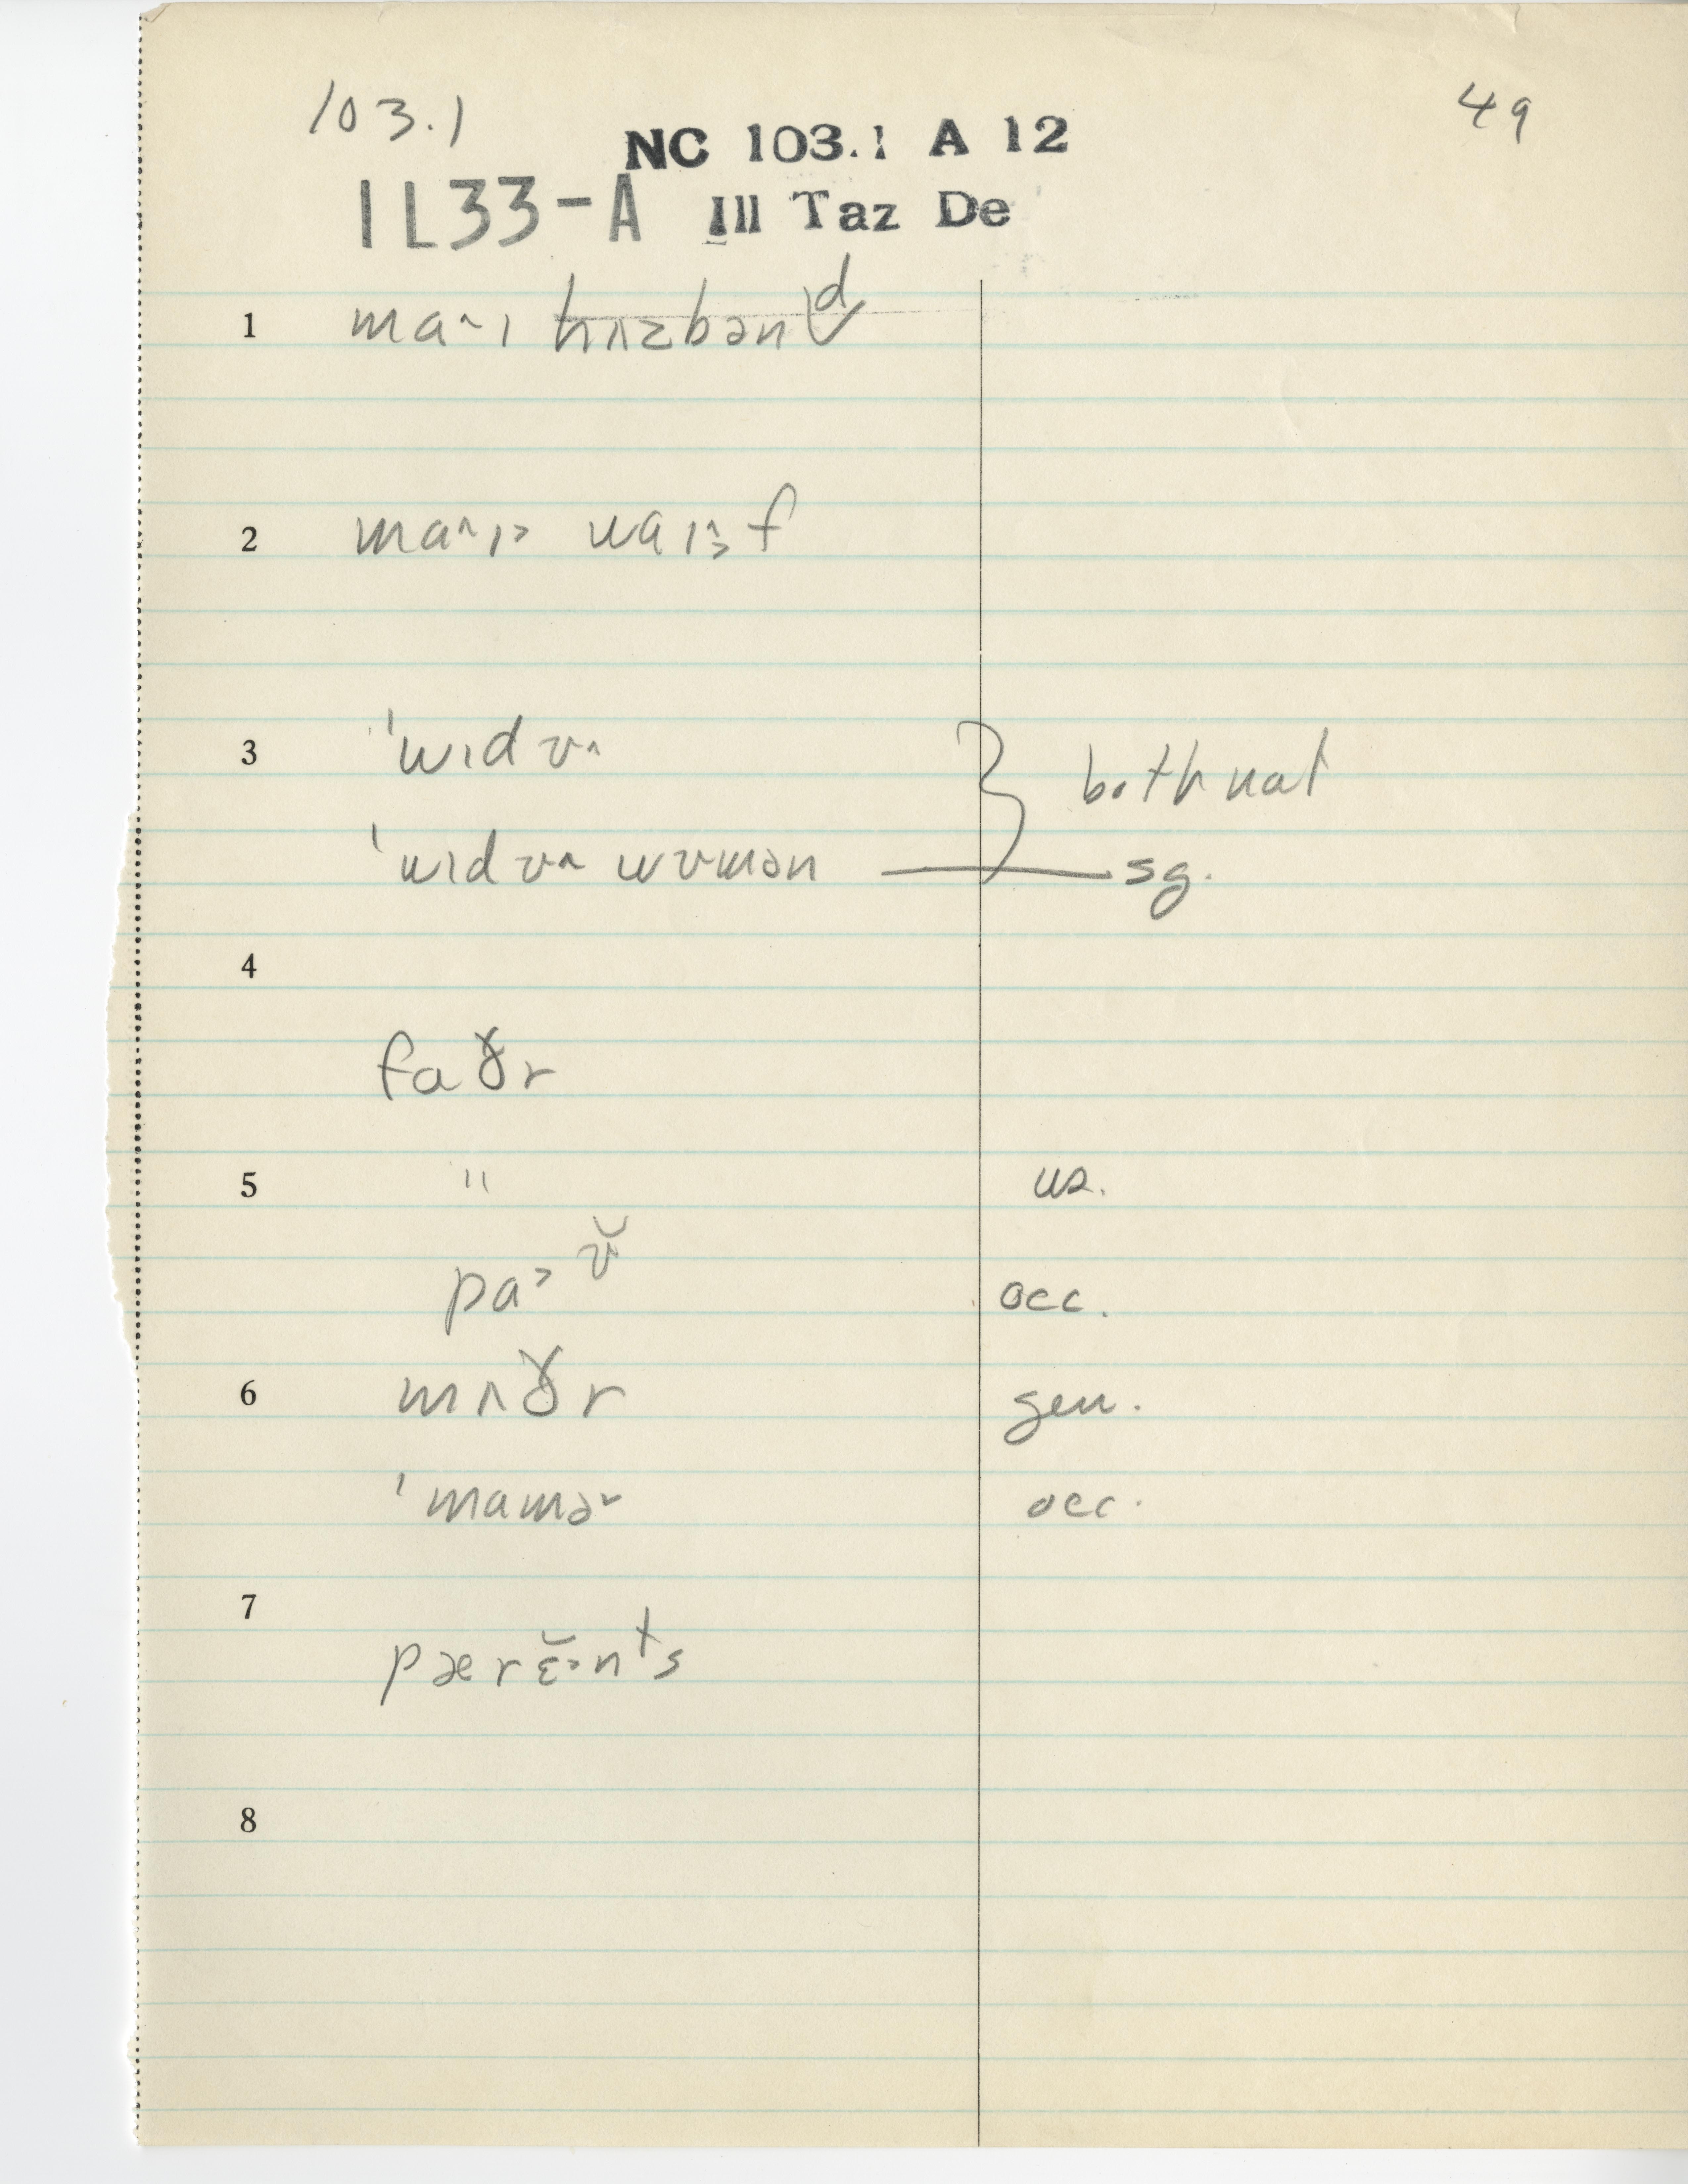 103.1
49
NC 103.1 A 12
IL33-A Ill Taz De
1 ma˄ɪ hʌzbənd
2 ma˄ɪ˃ waɪ˄˃f
3 ˈwɪdʊ˄
both nat
ˈwɪdʊ˄ wʊmən sg.
4
faðr
5 " us.
pa˃ʊ̆ occ.
6 mʌðr gen.
ˈmamə˅ occ.
7
pærɛ̆˃nts
8